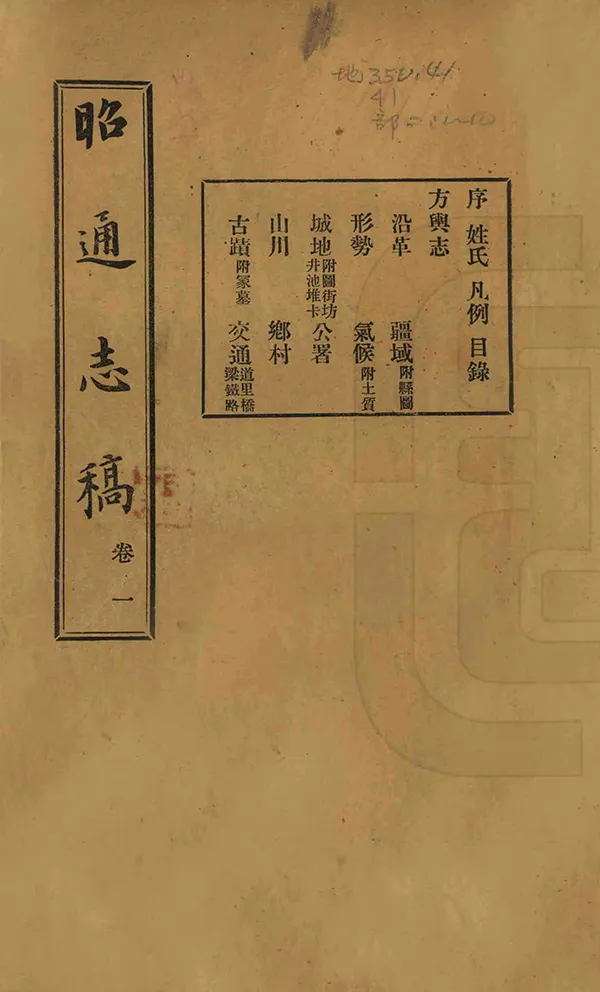 地350.41
41
序 姓氏 凡例 目錄
方輿志
沿革 疆域附縣圖
形勢 氣候附土質
城地附圖街坊井池堆卡 公署
山川 鄉村
古蹟附冢墓 交通道里橋梁鐵路
昭通志稿 卷一